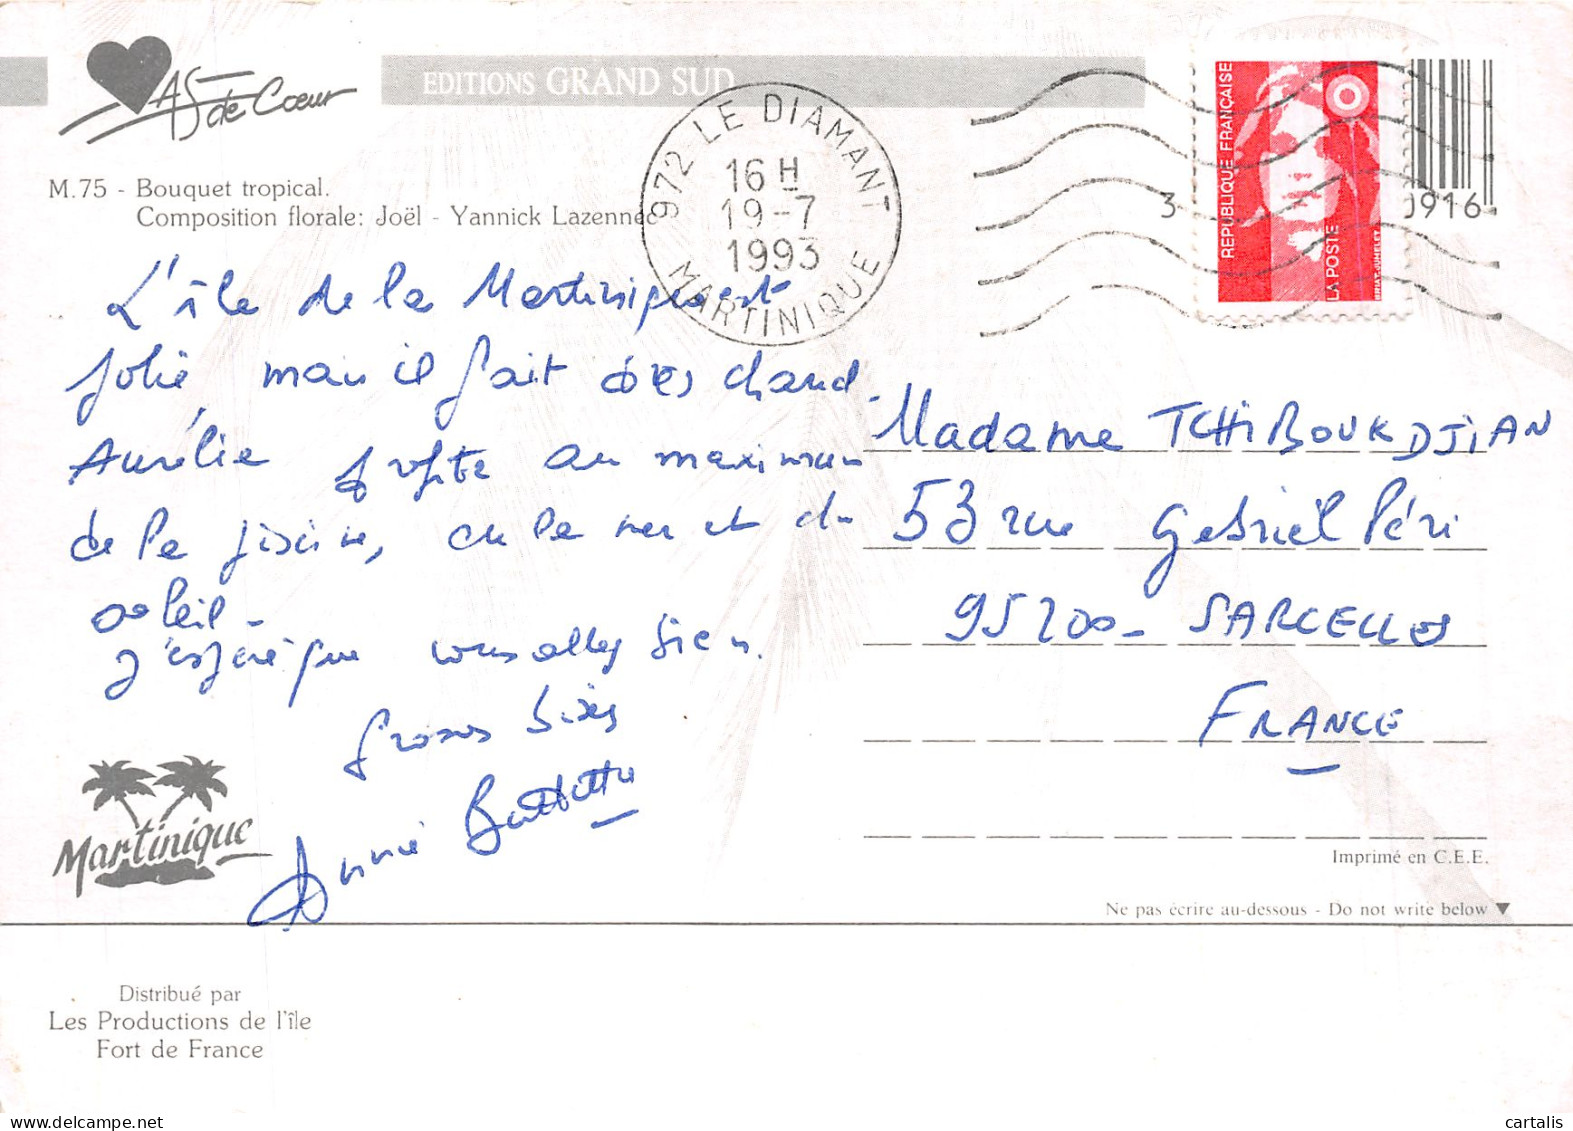 AS de Cœur
EDITIONS GRAND SUD
M.75 - Bouquet tropical.
Composition florale: Joël - Yannick Lazennec
972 LE DIAMANT
16 H
19-7
1993
MARTINIQUE
REPUBLIQUE FRANÇAISE
LA POSTE
3
0916
L'île de la Martinique est
jolie mais il fait très chaud.
Aurélie profite au maximum
de la piscine, de la mer et du
soleil.
J'espère que vous allez bien.
Grosses bises
Annie
Madame TCHIBOUKDJIAN
53 rue Gabriel Péri
95200 - SARCELLES
FRANCE
Martinique
Imprimé en C.E.E.
Ne pas écrire au-dessous - Do not write below
Distribué par
Les Productions de l'île
Fort de France
www.delcampe.net
cartalis